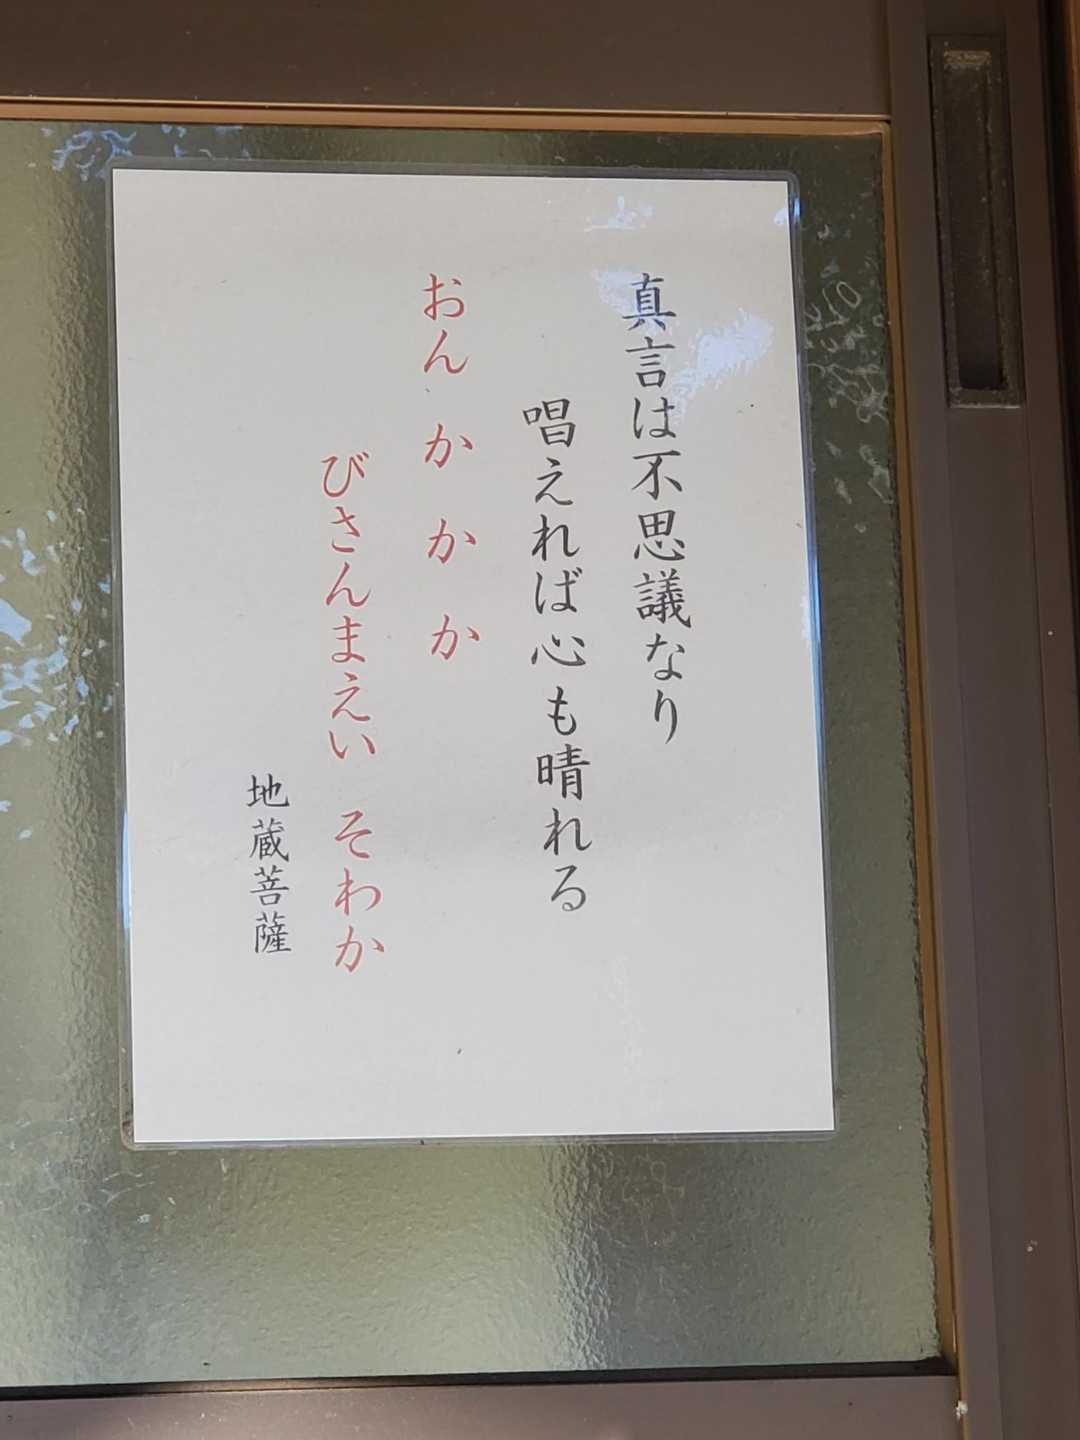 真言は不思議なり
唱えれば心も晴れる
おん か か か
びさんまえい そわか
地蔵菩薩